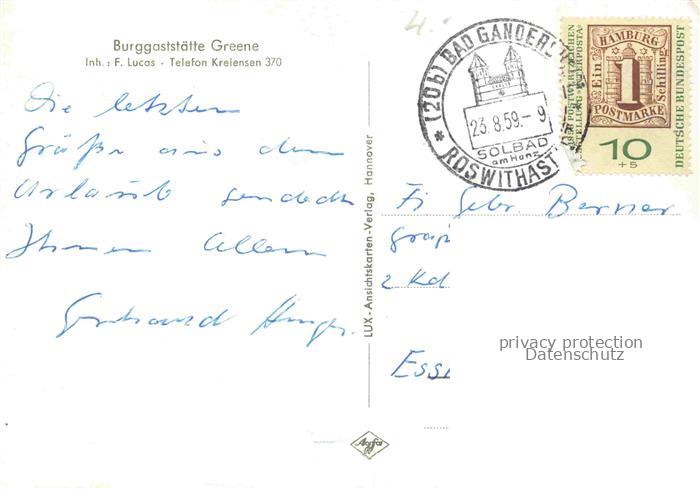 Burggaststätte Greene
Inh.: F. Lucas - Telefon Kreiensen 370
Die letzten
Grüße aus dem
Urlaub sendet
Ihnen Allen
Gerhard
LUX-Ansichtskarten-Verlag, Hannover
(20b) BAD GANDERS
23.8.59.-9
SOLBAD
am Harz
ROSWITHAST
HAMBURG
Ein
1
Schilling
POSTMARKE
10
+5
DEUTSCHE BUNDESPOST
Fi Gebr. Berner
2
Ess
privacy protection
Datenschutz
Agfa